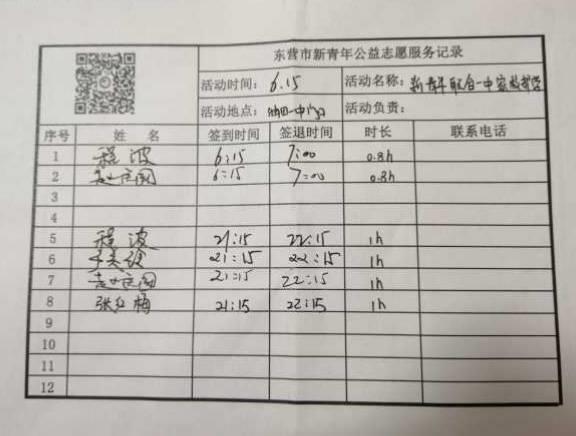 东营市新青年公益志愿服务记录
活动时间: 6.15 活动名称: 新青年联合一中家校
活动地点: 一中门口 活动负责:
序号 姓名 签到时间 签退时间 时长 联系电话
1 程波 6:15 7:00 0.8h
2 6:15 7:00 0.8h
3
4
5 程波 21:15 22:15 1h
6 21:15 22:15 1h
7 21:15 22:15 1h
8 张红梅 21:15 22:15 1h
9
10
11
12